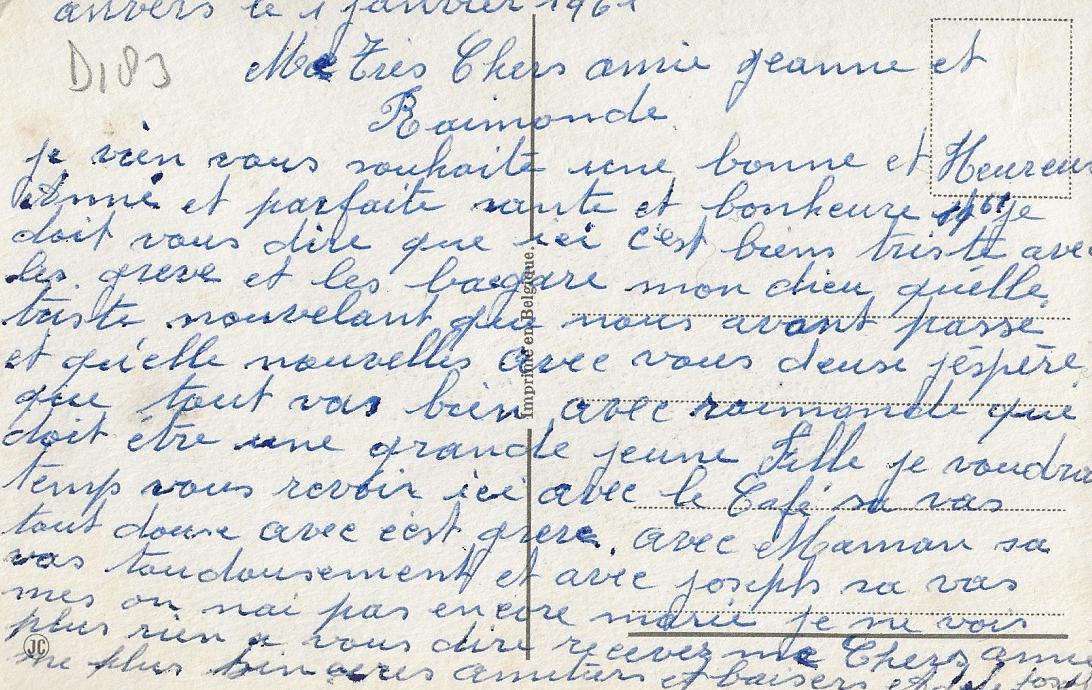 anvers le 1 janvier 1961
D183
Me Très Chers amie jeanne et
Raimonde
je vien vous souhaite une bonne et Heureus
Anné et parfaite sante et bonheure 1961 je
doit vous dire que ici c'est biens triste avec
les greve et les bagare mon dieu quélle
triste nouvelant que nous avont passé
et qu'elle nouvelles avec vous deuse jéspére
que tout vas bien avec raimonde que
doit étre une grande jeune Fille je voudra
temp vous revoir ici avec le Café sa vas
tout douse avec cést greve. avec Maman sa
vas toudousement et avec joseph sa vas
mes on nai pas encore marié je ne vois
plus rien a vous dire recevez me Chers amie
me plus sinceres amitiers et baisers
Imprimé en Belgique.
JC